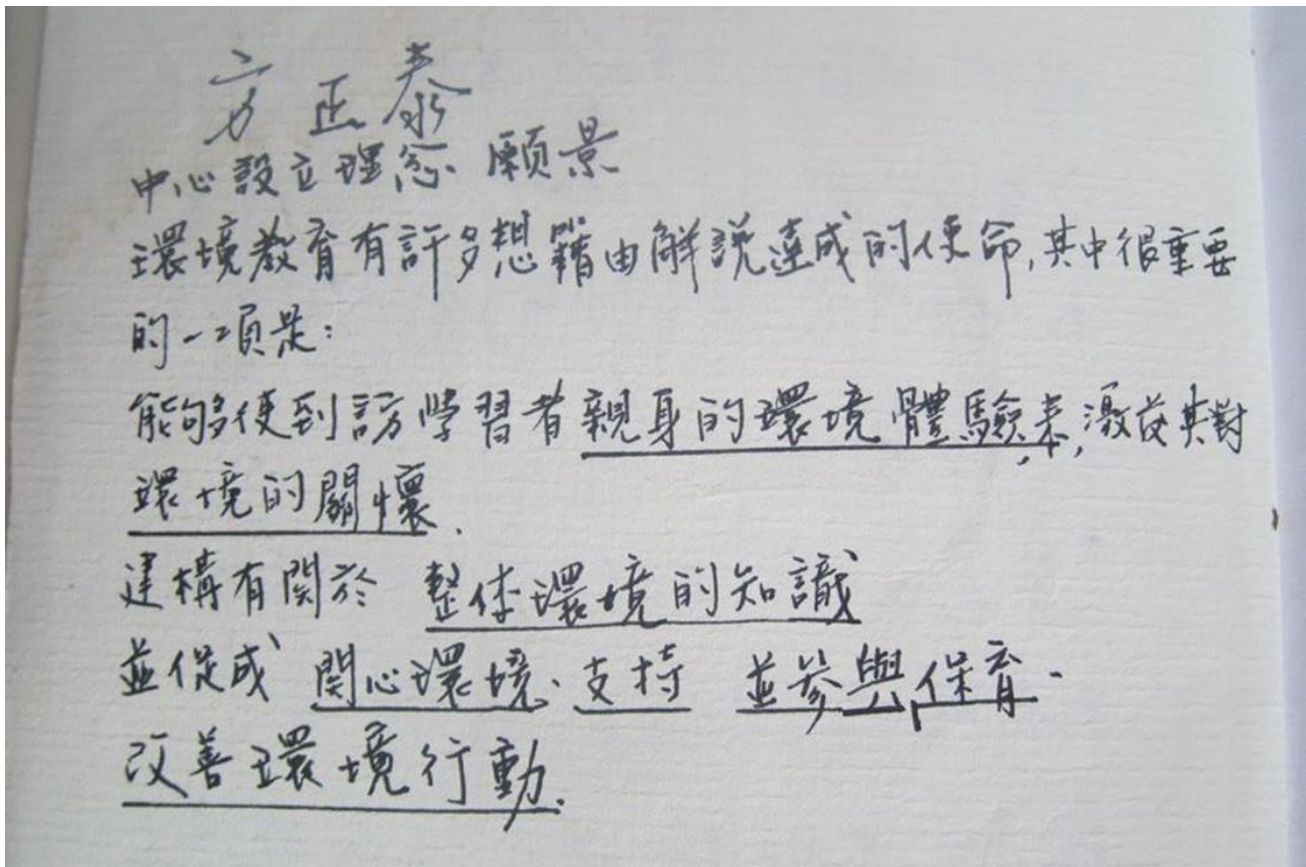 方正泰
中心設立理念 願景
環境教育有許多想籍由解說達成的使命,其中很重要
的一項是:
能够使到訪學習者親身的環境體驗来,激發其對
環境的關懷.
建構有関於 整体環境的知識
並促成 関心環境、支持 並參與保育、
改善環境行動.